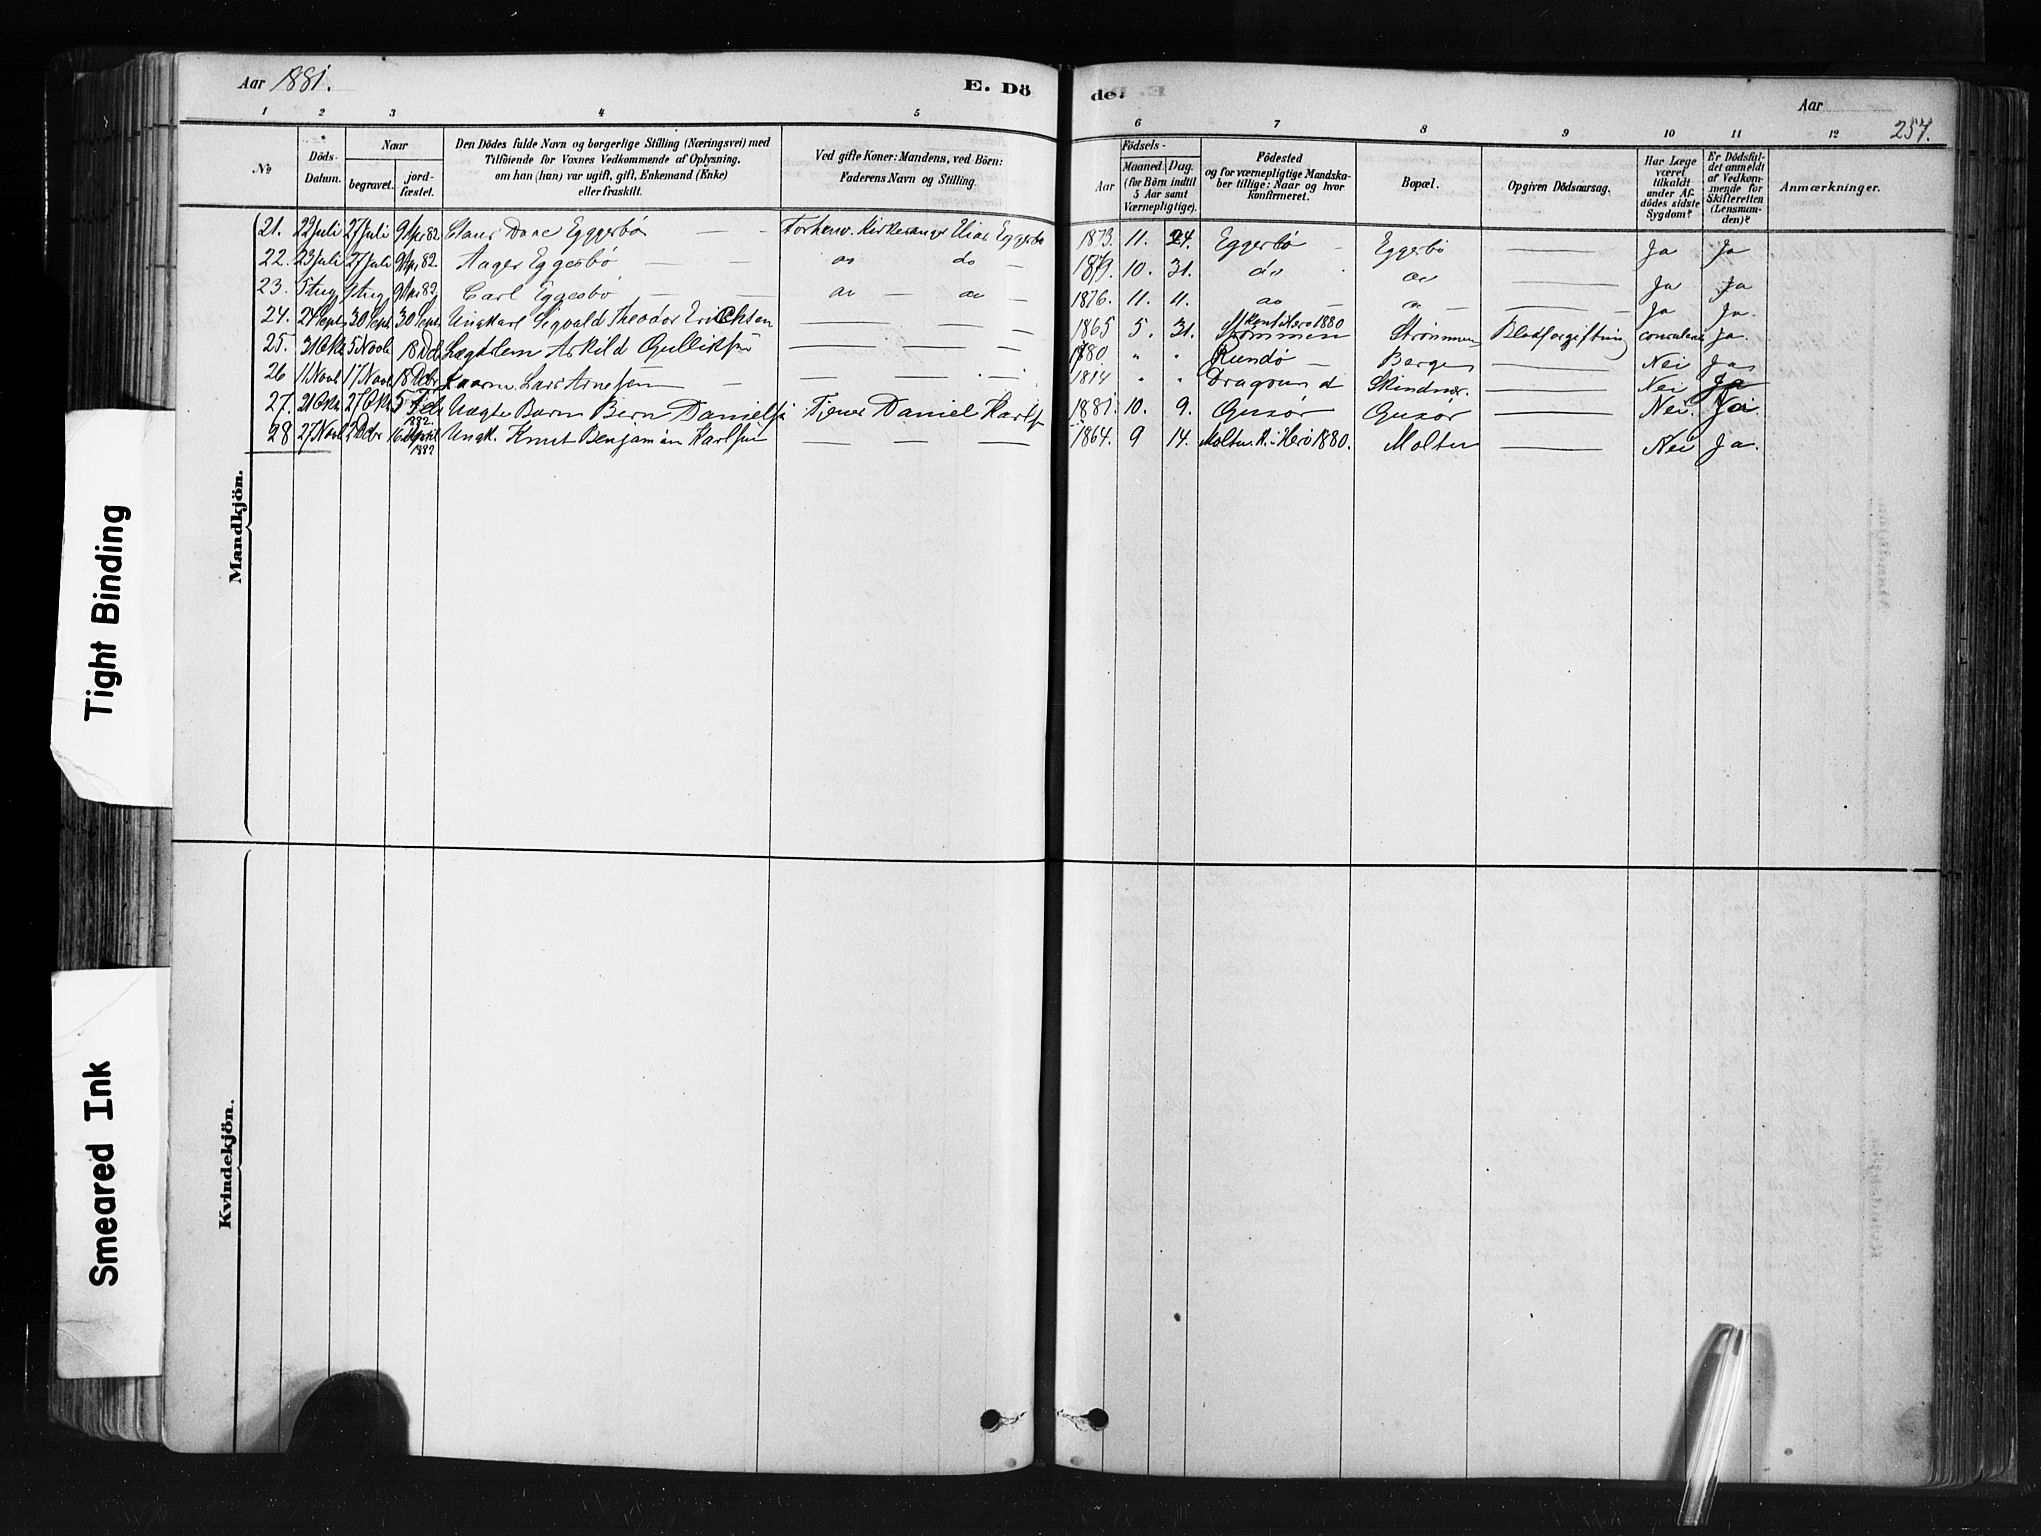 Aar 1881.
E. Dö
de.
Aar
257.
1 2 3 4 5
6 7 8 9 10 11 12
No
Döds-Datum.
Naar
begravet.
jord-fæstet.
Den Dödes fulde Navn og borgerlige Stilling (Næringsvei) med
Tilföiende for Voxnes Vedkommende af Oplysning,
om han (hun) var ugift, gift, Enkemand (Enke)
eller fraskilt.
Ved gifte Koner: Mandens, ved Börn:
Faderens Navn og Stilling.
Födsels-
Aar
Maaned. Dag.
(for Börn indtil
5 Aar samt
Værnepligtige).
Födested
og for værnepligtige Mandska-
ber tillige: Naar og hvor
konfirmeret.
Bopæl.
Opgiven Dödsaarsag.
Har Læge
været
tilkaldt
under Af-
dödes sidste
Sygdom?
Er Dödsfal-
det anmeldt
af Vedkom-
mende for
Skifteretten
(Lensman-
den)?
Anmærkninger.
21. 22 Juli 27 Juli 9 Apr 82 Claus Daae Eggesbö Forhenv. Kirkesanger Elias Eggesbö 1873. 11. 24. Eggesbö Eggesbö Ja Ja
22. 23 Juli 27 Juli 9 Apr 82. Aager Eggesbö do do 1879. 10. 31. do do Ja Ja
23. 5 Aug 9 Apr 82. Carl Eggesbö do do 1876. 11. 11. do do Ja Ja.
24. 24 Sept 30 Sept 30 Sept Ungkarl Sigvald Theodor Erichsen 1865 5. 31. Strömmen Kont Herö 1880 Strömmen Blodforgiftning Ja.
25. 31 Okt 5 Novb 18 Db Lægdslem Arkild Gulliksen 1780 " " Rundö Berge Nei Ja
26 11 Novb 17 Novb 18 Decbr Lars Arnesen 1814 " " Dragsund Skindnæs. Nei Ja
27. 21 Okt 27 Okt 5 Feb 1882. Uægte Barn Bern Danielsen Tjener Daniel Karls 1881. 10. 9. Gurskö Nei. Ja
28 27 Novb 2 Decbr 16 April 1882 Ungk. Knut Benjamin Karlsen 1864. 9 14. Moltu. K. i Herö 1880. Moltu Nei Ja.
Mandkjön.
Kvindekjön.
Tight Binding
Smeared Ink